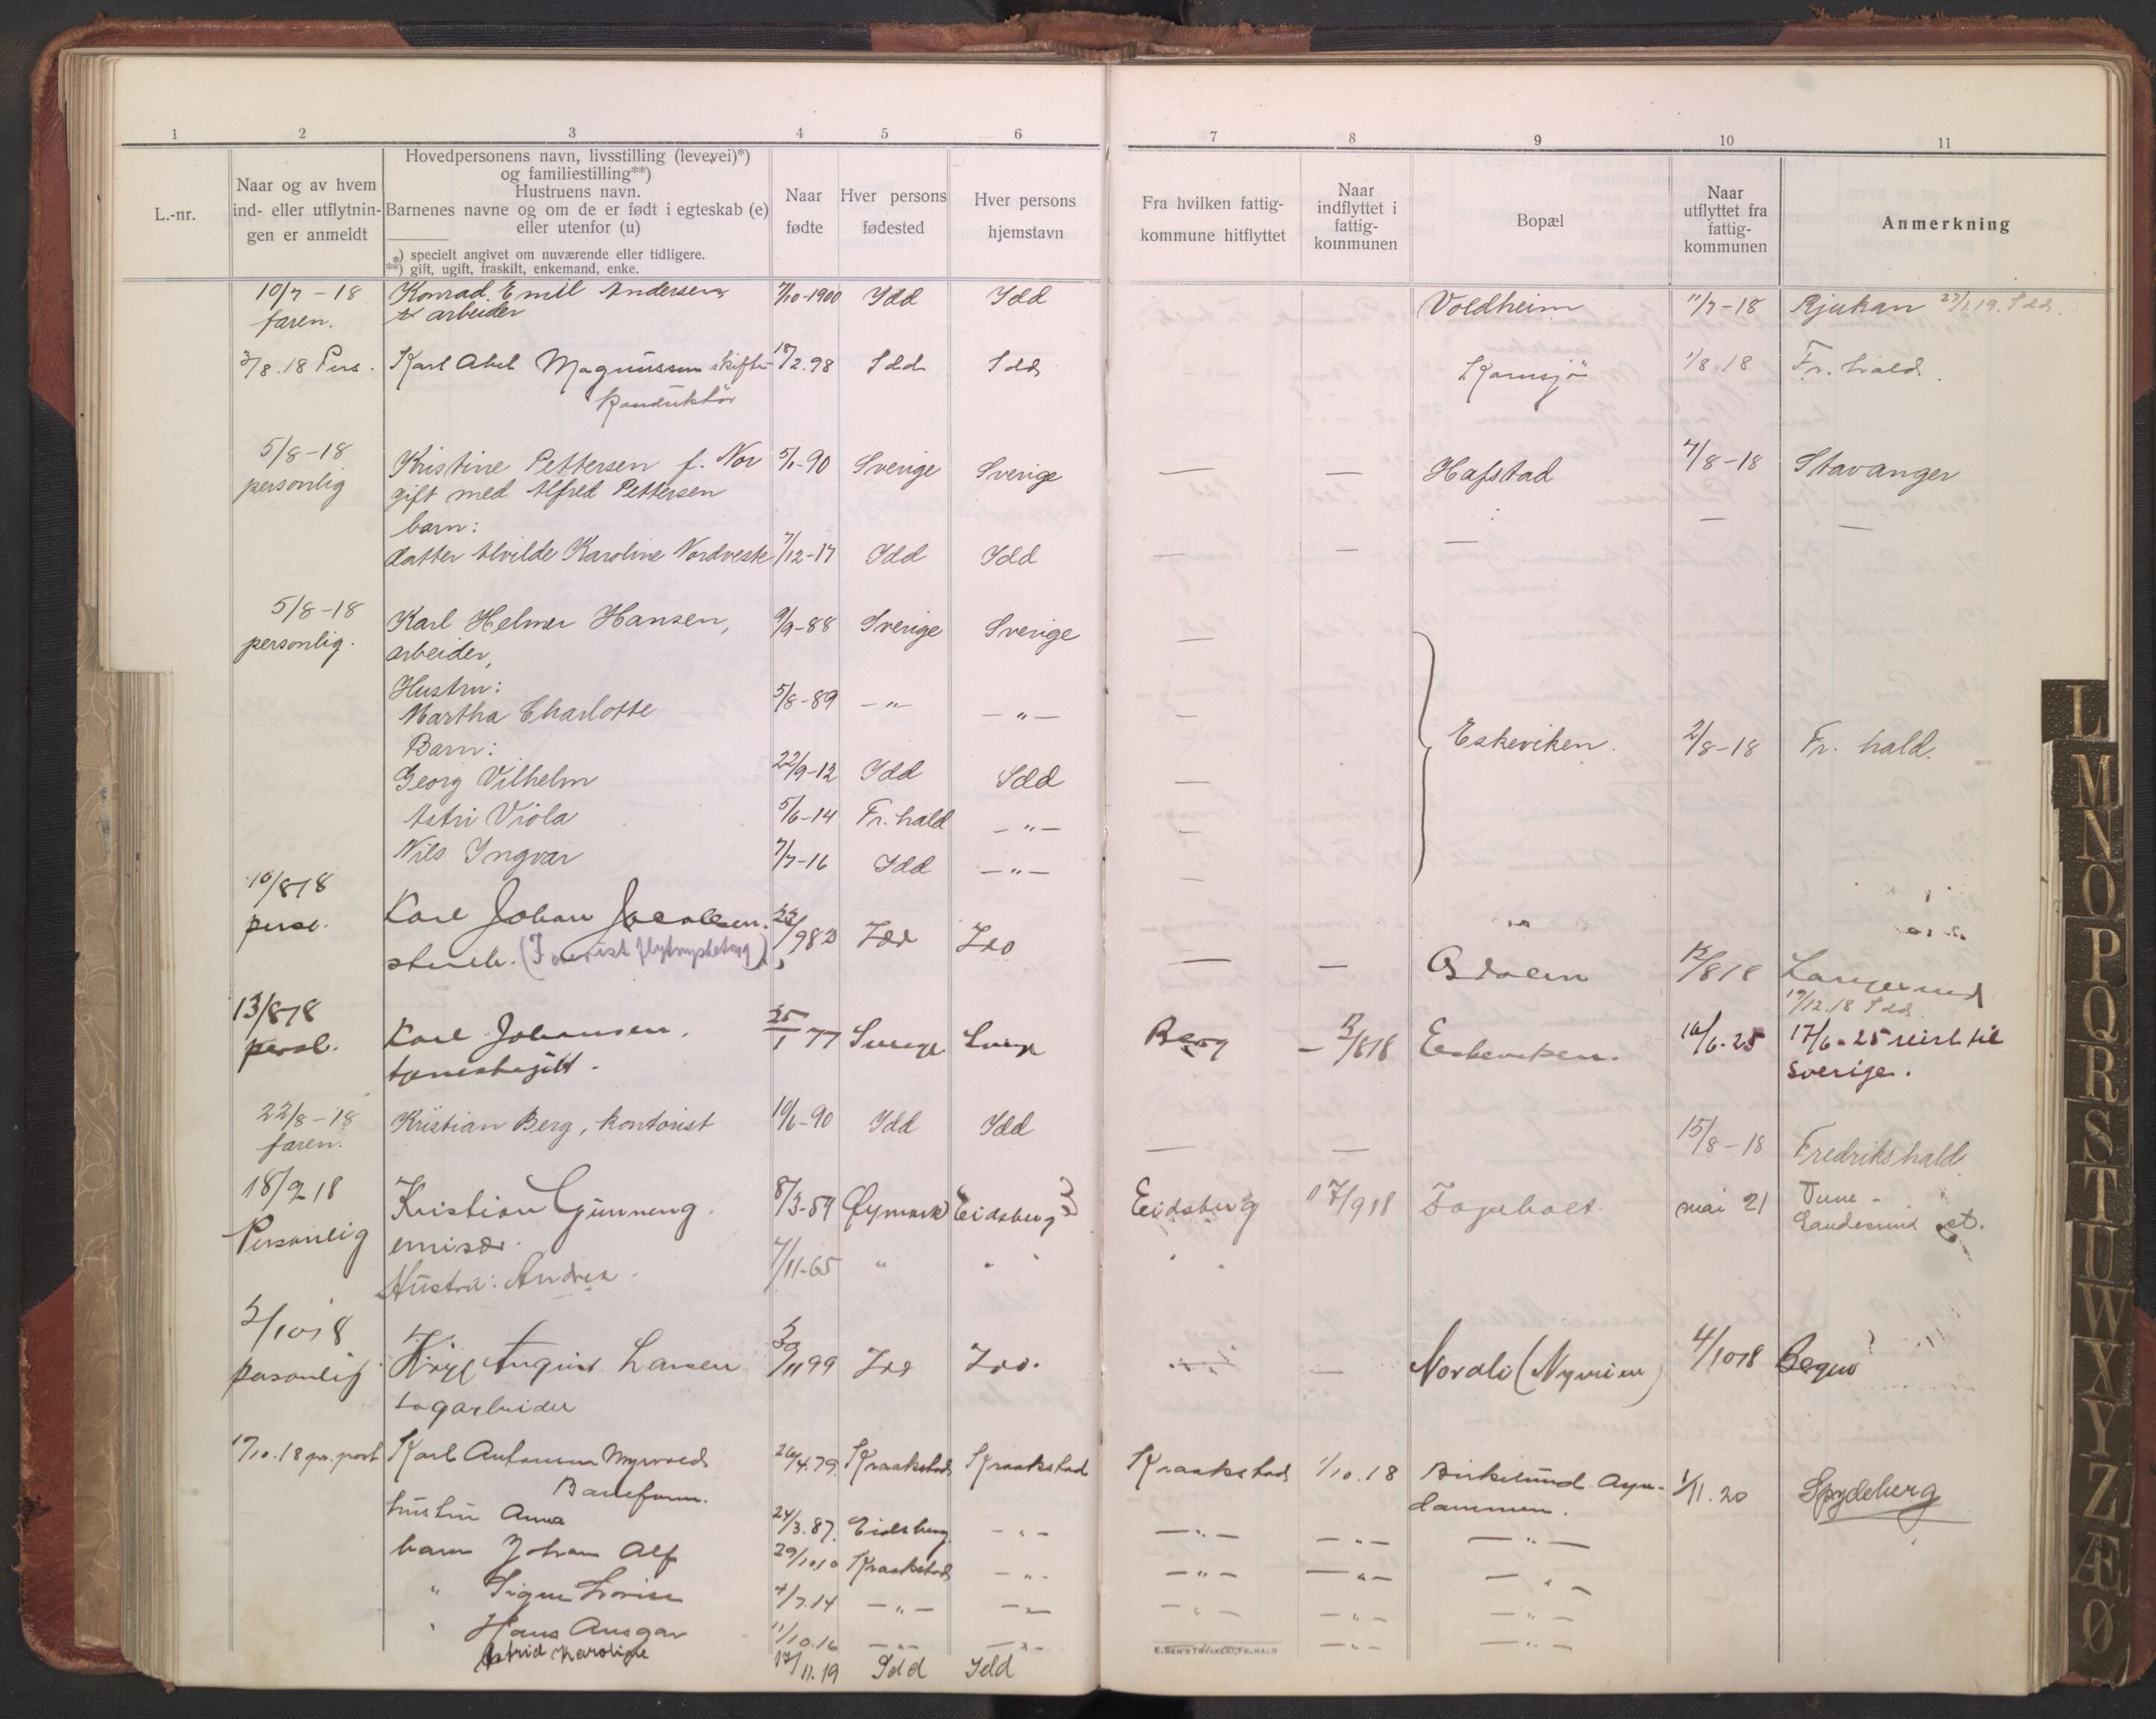 1 2 3 4 5 6 7 8 9 10 11
L.-nr.
Naar og av hvem
ind- eller utflytnin-
gen er anmeldt
Hovedpersonens navn, livsstilling (levevei)*)
og familiestilling**)
Hustruens navn.
Barnenes navne og om de er født i egteskab (e)
eller utenfor (u)
*) specielt angivet om nuværende eller tidligere.
**) gift, ugift, fraskilt, enkemand, enke.
Naar
fødte
Hver persons
fødested
Hver persons
hjemstavn
Fra hvilken fattig-
kommune hitflyttet
Naar
indflyttet i
fattig-
kommunen
Bopæl
Naar
utflyttet fra
fattig-
kommunen
Anmerkning
10/7 - 18 Konrad Emil Andersen 7/10-1900 Idd Idd Voldheim 11/7-18 Rjukan 27/1.19. Idd.
faren. arbeider
3/8.18 Pers. Karl Abel Magnussen skifte- 18/2.98 Idd Idd Kornsjö 1/8.18 Fr. hald.
konduktör
5/8-18 Kristine Pettersen f. Nor 5/1-90 Sverige Sverige — — Hafstad 7/8-18 Stavanger
personlig gift med Alfred Pettersen
barn: — —
datter Alvilde Karoline Nordveste 7/12-17 Idd Idd — — —
5/8-18 Karl Helmer Hansen, 9/9-88 Sverige Sverige —
personlig. arbeider,
Hustru:
Martha Charlotte 5/8-89 -"- -"- — Eskeviken. 2/8-18 Fr. hald.
Barn:
Georg Vilhelm 22/9-12 Idd Idd —
Astri Viola 5/6-14 Fr. hald -"- —
Nils Ingvar 7/7-16 Idd -"- —
10/818 Karl Johan Jacobsen. Idd Idd — — 12/818
pers.
19/12.18 Idd
13/818 Karl Johansen. 25/1 77 Sverige Sverige Berg 12/818 Eskeviken. 16/6-25 17/6-25 reist til
persl. Sverige.
22/8-18 Kristian Berg, kontorist 10/6-90 Idd Idd — — 15/8-18 Fredrikshald.
faren.
18/9 18 Kristian Gunneng. 8/3-59 Øymark Eidsberg Eidsberg 17/918 mai 21 Tune -
Personlig emisær. st.
Hustru: Andrea. 7/11-65 "
5/1018 August Larsen 99 Idd Idd. — Nordli 4/1018
personlig
17/10.18 pr. post Karl Antonsen 26/4.79. Kraakstad Kraakstad Kraakstad 1/10.18 Birkelund 1/11.20 Spydeberg
Baneform. dammen.
hustru Anna 24/3.87. Eidsberg -"- -"- -"- -"-
barn Johan Alf 29/10.10 Kraakstad -"- -"- -"- -"-
" Signe Lovise 4/7.14 -"- -"- -"- -"- -"-
" Hans Ansgar 11/10.16 -"- -"- -"- -"-
Astrid Karoline 17/11.19 Idd Idd
E. SEM'S TRYKKERI, FR.HALD
L
M
N
O
P
Q
R
S
T
U
W
X
Y
Z
Æ
Ø